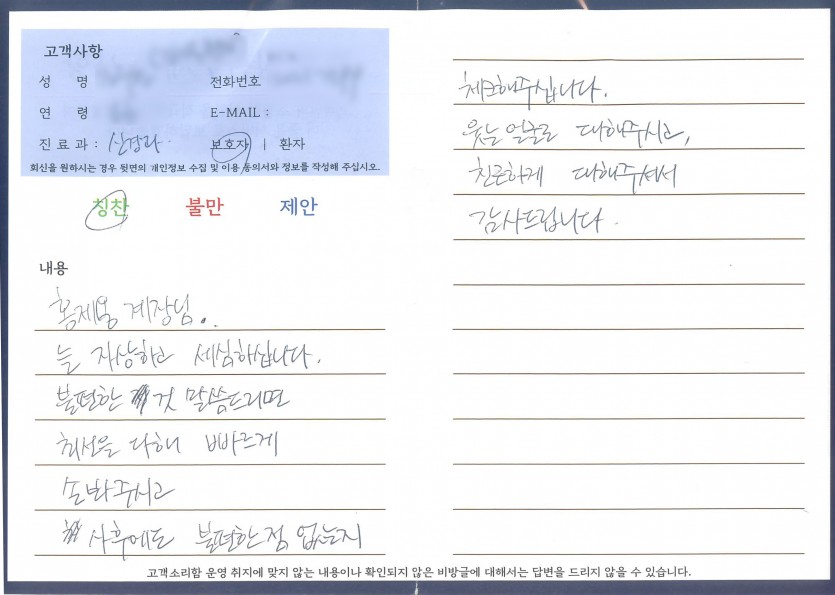 고객사항
성 명
전화번호
연 령 :
E-MAIL :
진료과 : 신경과
보호자 | 환자
회신을 원하시는 경우 뒷면의 개인정보 수집 및 이용 동의서와 정보를 작성해 주십시오.
칭찬 불만 제안
내용
홍제용 계장님..
늘 자상하고 세심하십니다.
불편한 것 말씀드리면
최선을 다해 빠르게
손봐주시고
사후에도 불편한 점 없는지
체크해주십니다.
웃는 얼굴로 대해주시고,
친근하게 대해주셔서
감사드립니다.
고객소리함 운영 취지에 맞지 않는 내용이나 확인되지 않은 비방글에 대해서는 답변을 드리지 않을 수 있습니다.